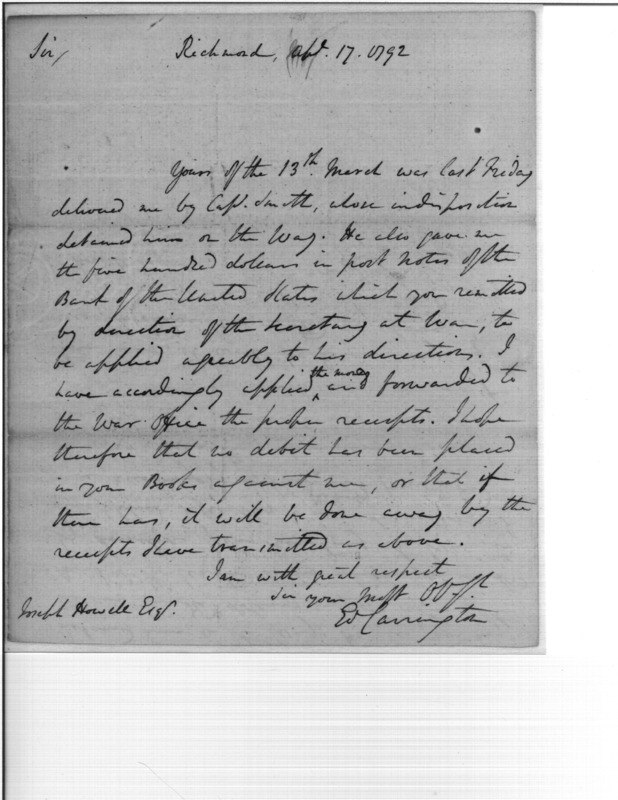 Sir, Richmond, Apl. 17. 1792
Yours of the 13th. March was last Friday
delivered me by Capt. Smith, whose indisposition
detained him on the Way. He also gave me
the five hundred dollars in post notes of the
Bank of the United States which you remitted
by direction of the Secretary at War, to
be applied agreeably to his directions. I
have accordingly applied the money and forwarded to
the War Office the proper receipts. I hope
therefore that no debit has been placed
in your Books against me, or that if
there has, it will be done away by the
receipts I have transmitted as above.
I am with great respect
Sir your Most Obt. St.
Ed Carrington
Joseph Howell Esqr.